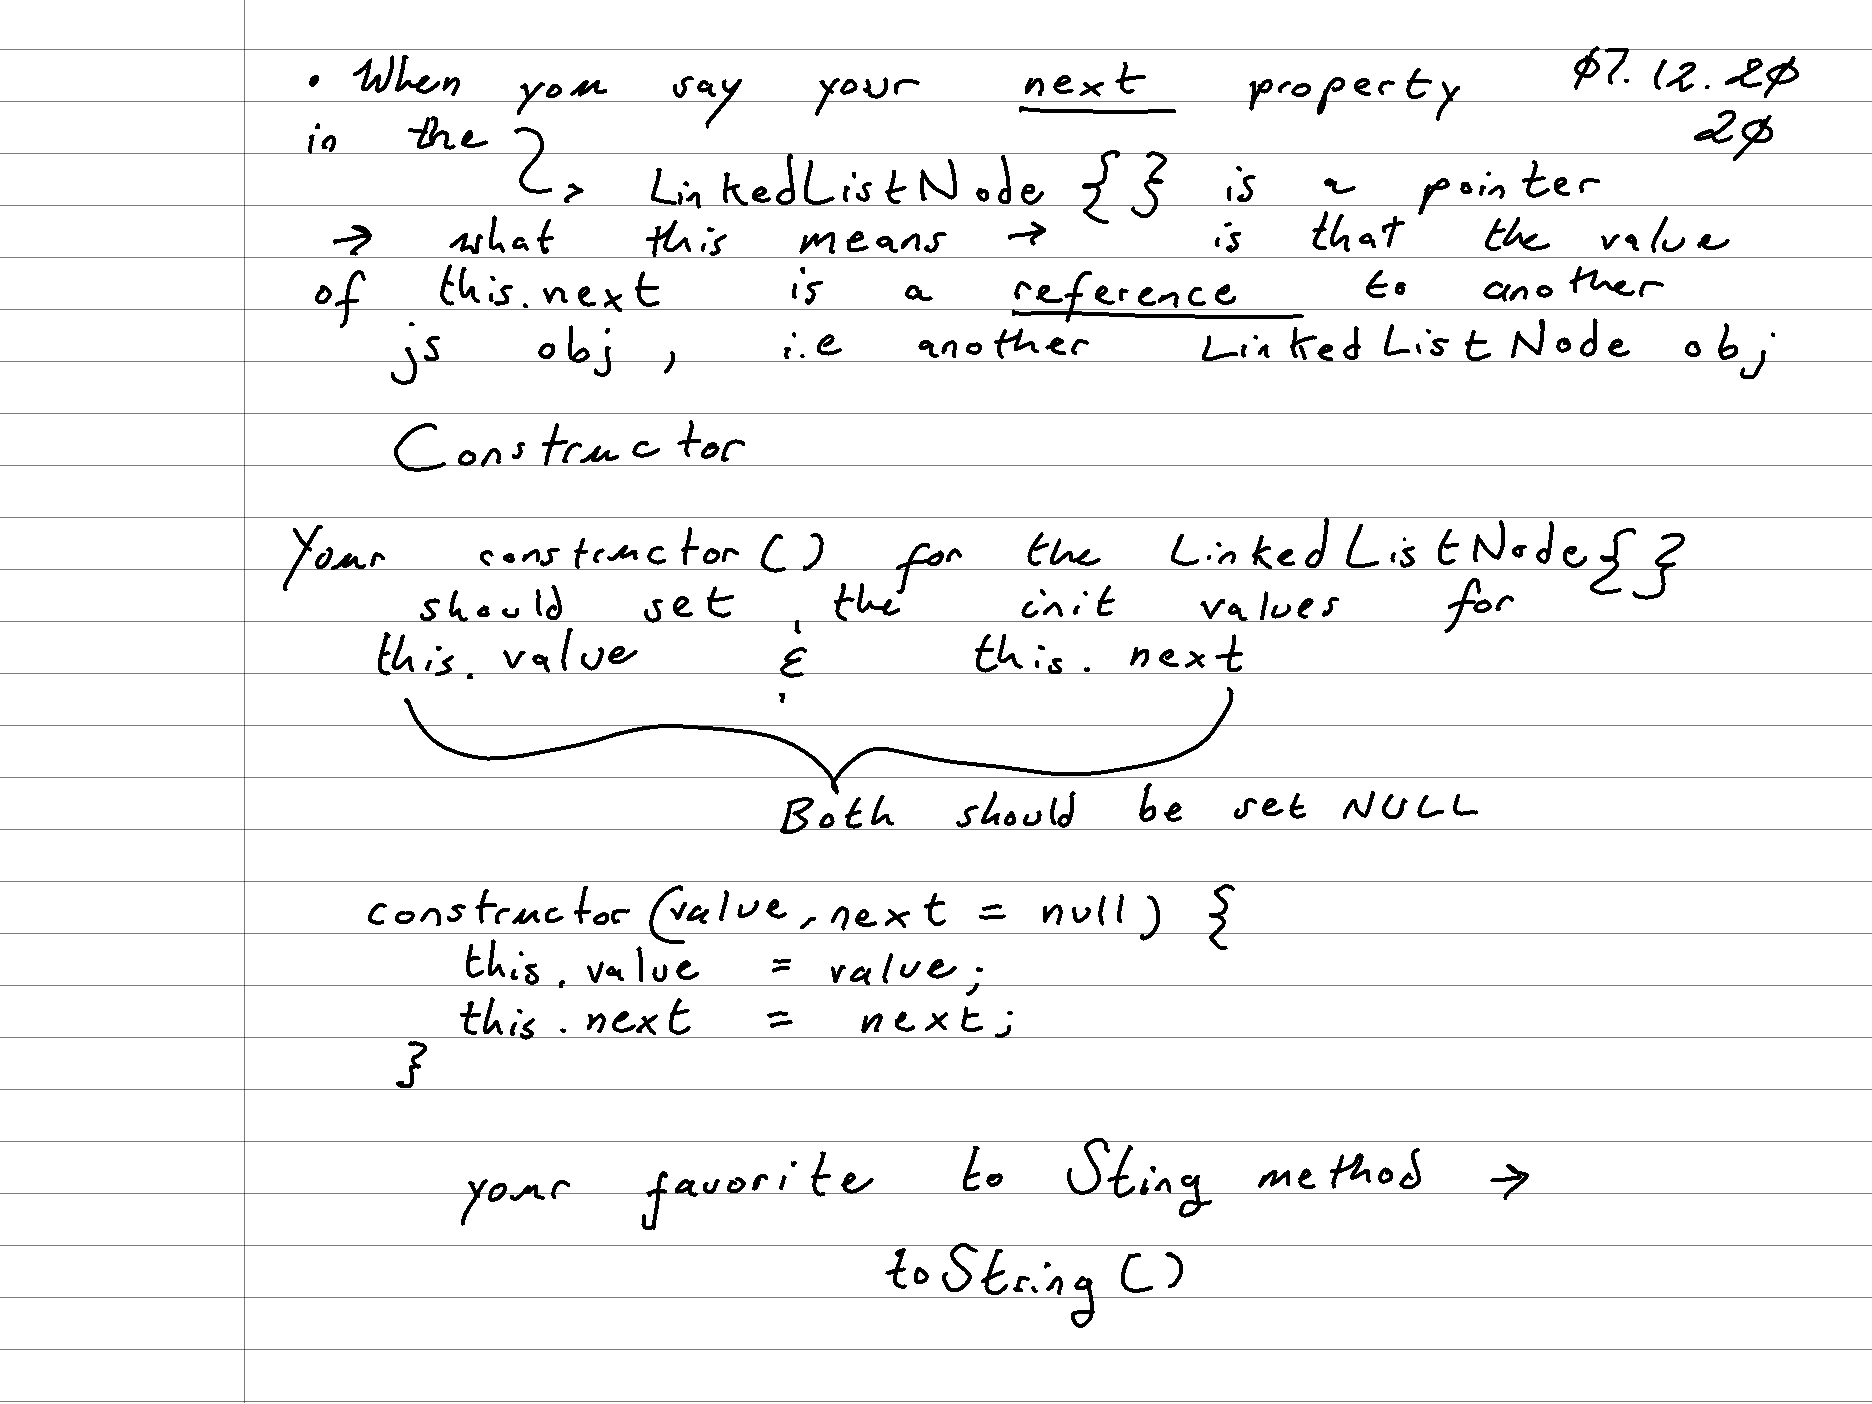 • When you say your next property ø7.12.2ø
2ø
in the
LinkedListNode { } is a pointer
→ what this means → is that the value
of this.next is a reference to another
js obj, i.e another LinkedListNode obj
Constructor
Your constructor() for the LinkedListNode{ }
should set the init values for
this.value & this.next
Both should be set NULL
constructor(value, next = null) {
this.value = value;
this.next = next;
}
your favorite to Sting method →
toString()